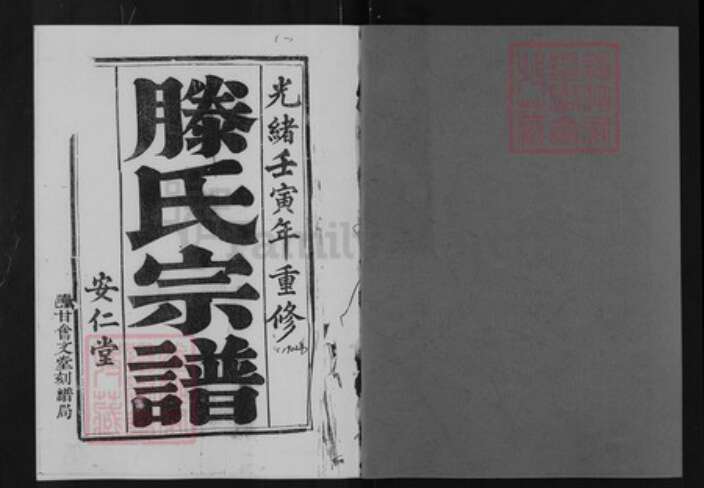 光緒壬寅年重修
滕氏宗譜
安仁堂
甘會文堂刻譜局